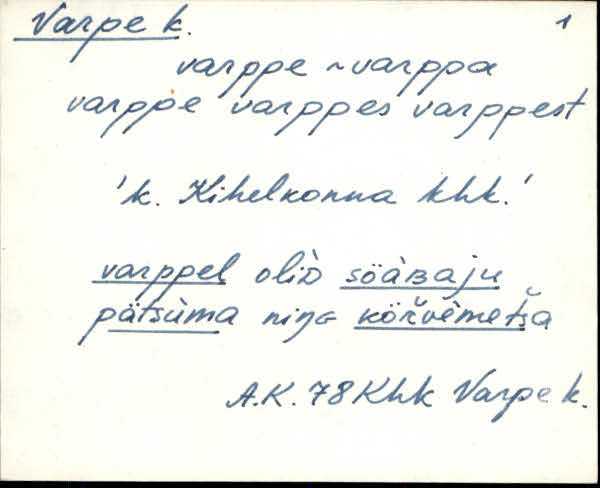 Varpe k. 1
varppe ~ varppa
varppe varppes varppest
'k. Kihelkonna khk.'
varppel olìᴅ söàʙaju
pätsùma niŋɢ köřvèmetša
A.K. 78 Khk Varpe k.